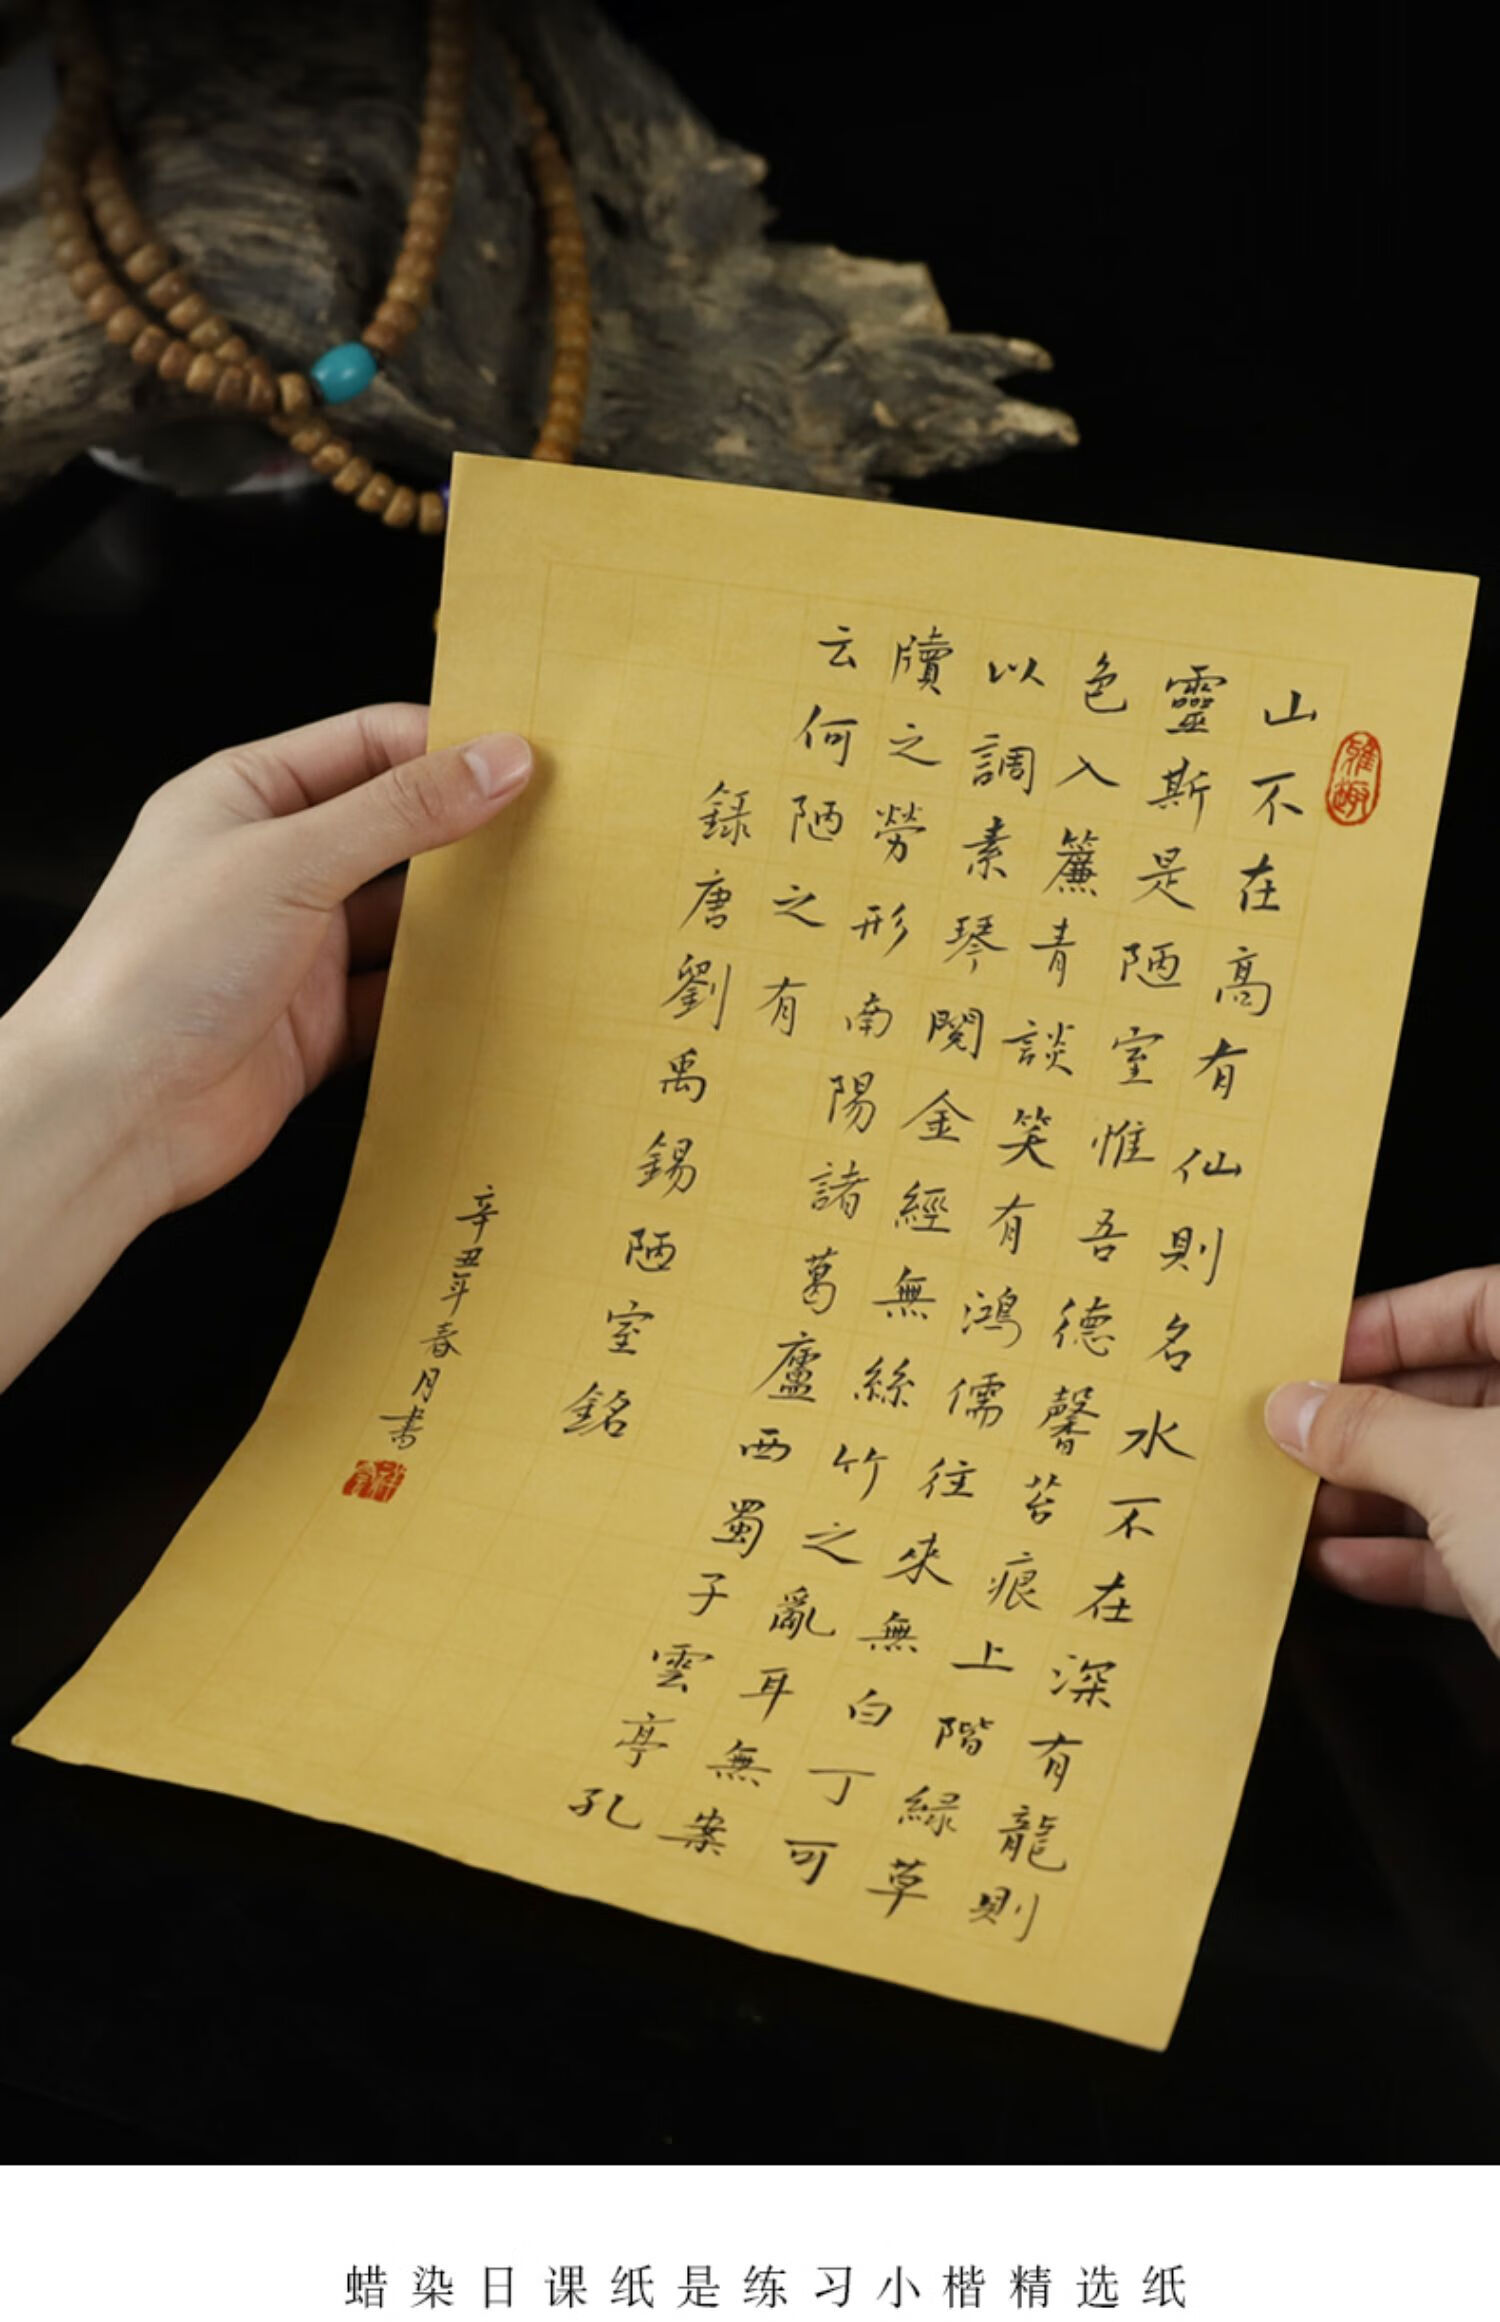 雅趣
山不在高有仙則名水不在深有龍則
靈斯是陋室惟吾德馨苔痕上階緑草
色入簾青談笑有鴻儒往來無白丁可
以調素琴閱金經無絲竹之亂耳無案
牘之勞形南陽諸葛廬西蜀子雲亭孔
云何陋之有
録唐劉禹錫陋室銘
辛丑年春月書
蜡染日课纸是练习小楷精选纸